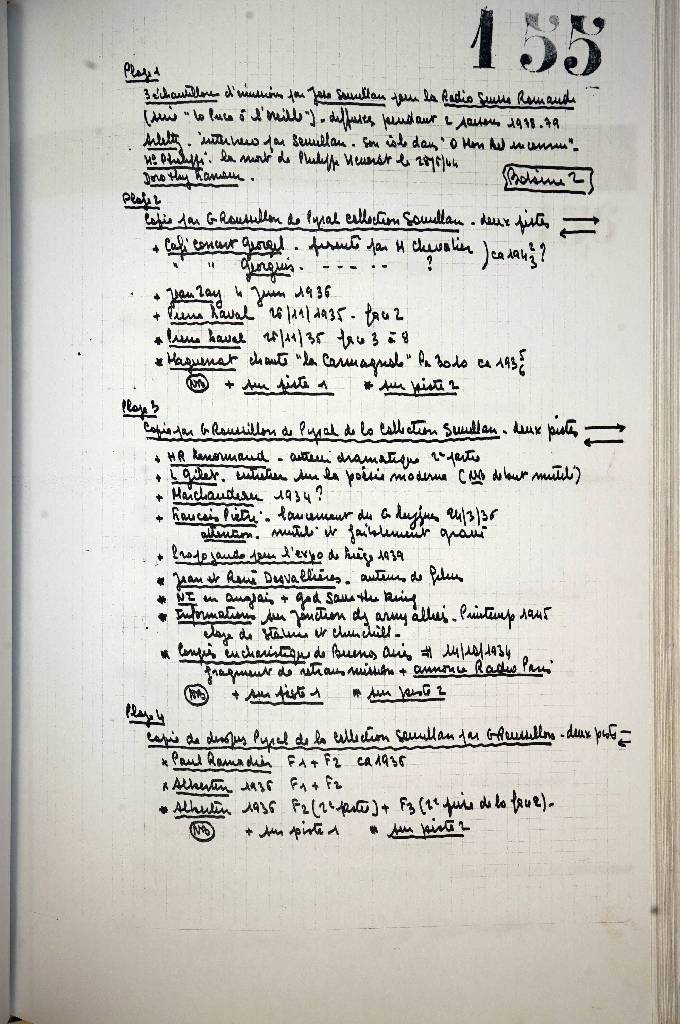 155
Plage 1
3 échantillons d'émissions par José Sourillan pour la Radio Suisse Romande
(série "la Puce à l'Oreille") - diffusées pendant 2 saisons 1978-79
Arletty. interview par Sourillan. Son rôle dans "
Ph. la mort de Philippe Henriot le 28/6/44
Dorothy Lamour.
Bobine 2
Plage 2
Copie par G Roussillon de Pyral collection Sourillan - deux pistes
+ Café concert Georgel. présenté par M Chevalier ) ca 1942/3 ?
" " Georgius. - - - - - - ?
+ Jean Zay 4 Juin 1936
+ Pierre Laval 26/11/1935 - face 2
* Pierre Laval 26/11/35 face 3 à 8
* Haguenat chante "la Carmagnole" Pa 3010 ca 1935/6
NB + sur piste 1 * sur piste 2
Plage 3
Copie par G Roussillon de Pyral de la Collection Sourillan - deux pistes
+ HR Lenormand - auteur dramatique 2e partie
+ L Gillet. entretien sur la poésie moderne (NB début mutilé)
+ Marchandeau 1934 ?
+ François Piétri - lancement du 24/3/36
attention. mutilé et faiblement gravé
+ Propagande pour l'expo de Liège 1939
* Jean et René Desvallières. auteurs de
* NI en anglais + God Save the King
* Informations sur jonction des army alliés. Printemps 1945
éloge de Staline et Churchill -
* Congrès eucharistique de Buenos Aires # 14/10/1934
fragment de retransmission + annonce Radio Paris
NB + sur piste 1 * sur piste 2
Plage 4
Copie de disques Pyral de la collection Sourillan par G Roussillon - deux pistes
* Paul Ramadier F1 + F2 ca 1936
* Albertin 1936 F1 + F2
* Albertin 1936 F2 (2e partie) + F3 (2e prise de la face 2) -
NB + sur piste 1 * sur piste 2